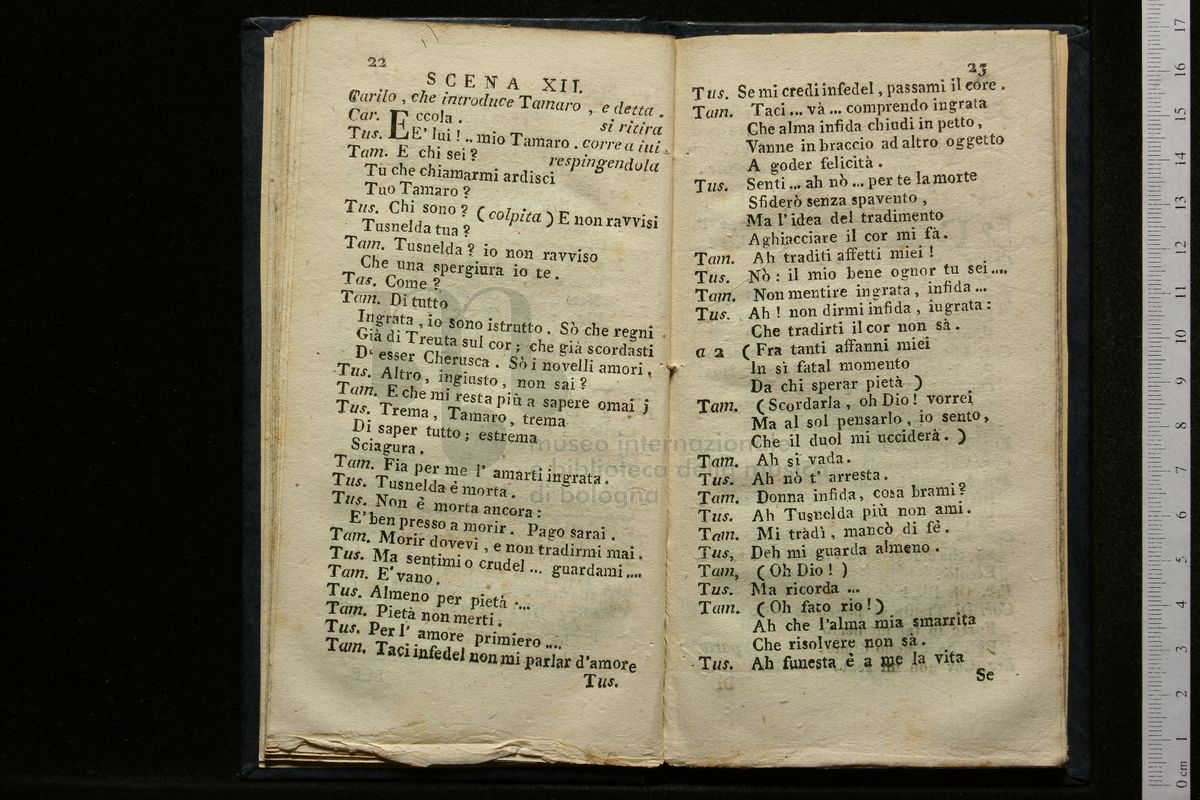 22
SCENA XII.
Carilo, che introduce Tamaro, e detta.
Car. Eccola. si ritira
Tus. E' lui!.. mio Tamaro. corre a lui.
Tam. E chi sei? respingendola
Tu che chiamarmi ardisci
Tuo Tamaro?
Tus. Chi sono? (colpita) E non ravvisi
Tusnelda tua?
Tam. Tusnelda? io non ravviso
Che una spergiura io te.
Tus. Come?
Tam. Di tutto
Ingrata, io sono istrutto. Sò che regni
Già di Treuta sul cor; che già scordasti
D' esser Cherusca. Sò i novelli amori,
Tus. Altro, ingiusto, non sai?
Tam. E che mi resta più a sapere omai;
Tus. Trema, Tamaro, trema
Di saper tutto; estrema
Sciagura.
Tam. Fia per me l' amarti ingrata.
Tus. Tusnelda è morta.
Tus. Non è morta ancora:
E' ben presso a morir. Pago sarai.
Tam. Morir dovevi, e non tradirmi mai.
Tus. Ma sentimi o crudel ... guardami ....
Tam. E' vano.
Tus. Almeno per pietà ....
Tam. Pietà non merti.
Tus. Per l' amore primiero ....
Tam. Taci infedel non mi parlar d'amore
Tus.
23
Tus. Se mi credi infedel, passami il core.
Tam. Taci ... và ... comprendo ingrata
Che alma infida chiudi in petto,
Vanne in braccio ad altro oggetto
A goder felicità.
Tus. Senti ... ah nò ... per te la morte
Sfiderò senza spavento,
Ma l'idea del tradimento
Aghiacciare il cor mi fà.
Tam. Ah traditi affetti miei!
Tus. Nò: il mio bene ognor tu sei....
Tam. Non mentire ingrata, infida ...
Tus. Ah! non dirmi infida, iugrata:
Che tradirti il cor non sà.
a 2 (Fra tanti affanni miei
In sì fatal momento
Da chi sperar pietà)
Tam. (Scordarla, oh Dio! vorrei
Ma al sol pensarlo, io sento,
Che il duol mi ucciderà.)
Tam. Ah si vada.
Tus. Ah nò t' arresta.
Tam. Donna infida, cosa brami?
Tus. Ah Tusnelda più non ami.
Tam. Mi tradì, mancò di fè.
Tus, Deh mi guarda almeno.
Tam, (Oh Dio!)
Tus. Ma ricorda ...
Tam. (Oh fato rio!)
Ah che l'alma mia smarrita
Che risolvere non sà.
Tus. Ah funesta è a me la vita
Se
museo internazionale
biblioteca della musica
di bologna
0 cm 1 2 3 4 5 6 7 8 9 10 11 12 13 14 15 16 17